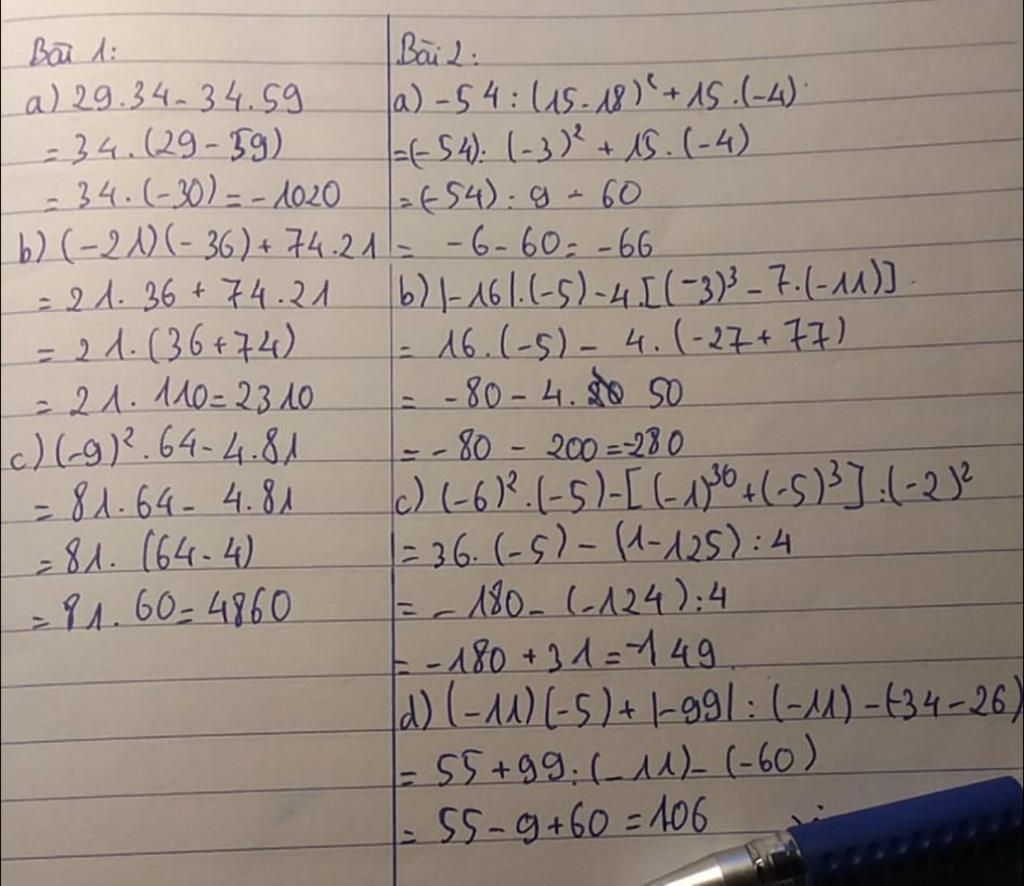 Bài 1:
a) 29.34 - 34.59
= 34.(29 - 59)
= 34.(-30) = -1020
b) (-21)(-36) + 74.21
= 21.36 + 74.21
= 21.(36+74)
= 21.110 = 2310
c) (-9)².64 - 4.81
= 81.64 - 4.81
= 81.(64-4)
= 81.60 = 4860
Bài 2:
a) -54:(15-18)² + 15.(-4)
= (-54):(-3)² + 15.(-4)
= (-54):9 - 60
= -6 - 60 = -66
b) |-16|.(-5) - 4.[(-3)³ - 7.(-11)]
= 16.(-5) - 4.(-27 + 77)
= -80 - 4. 50
= -80 - 200 = -280
c) (-6)².(-5) - [(-1)³⁶ + (-5)³]:(-2)²
= 36.(-5) - (1-125):4
= -180 - (-124):4
= -180 + 31 = -149
d) (-11)(-5) + |-99|:(-11) - (-34-26)
= 55 + 99:(-11) - (-60)
= 55 - 9 + 60 = 106